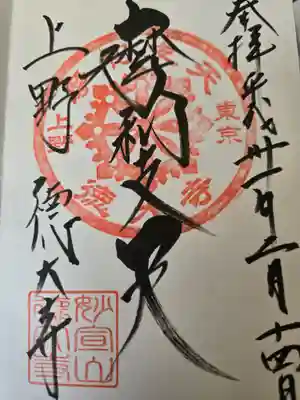 奉拝 平成卅一年二月十四日
摩利支天
上野 徳大寺
東京
上野
妙宣山
徳大寺